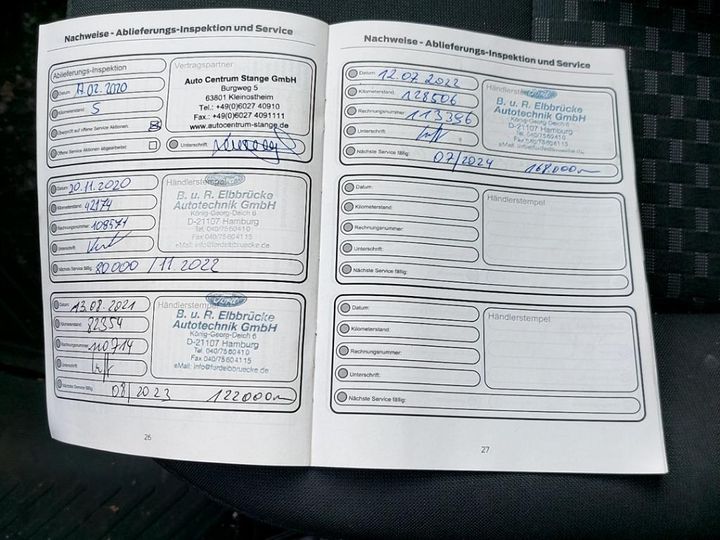 Nachweise - Ablieferungs-Inspektion und Service
Ablieferungs-Inspektion
Datum: 17.02.2020
Kilometerstand: 5
Überprüft auf offene Service Aktionen.
Offene Service Aktionen abgearbeitet.
Vertragspartner
Auto Centrum Stange GmbH
Burgweg 5
63801 Kleinostheim
Tel.: +49(0)6027 40910
Fax.: +49(0)6027 4091111
www.autocentrum-stange.de
Unterschrift:
Datum: 20.11.2020
Kilometerstand: 42174
Rechnungsnummer: 108571
Unterschrift:
Nächste Service fällig: 80000 / 11.2022
Händlerstempel
B. u. R. Elbbrücke
Autotechnik GmbH
König-Georg-Deich 6
D-21107 Hamburg
Tel. 040/75 604 1 0
Fax 040/75 604 1 15
eMail: info@fordelbbruecke.de
Datum: 13.08.2021
Kilometerstand: 82354
Rechnungsnummer: 110714
Unterschrift:
Nächste Service fällig: 08/2023 122000
Händlerstempel
Ford
B. u. R. Elbbrücke
Autotechnik GmbH
König-Georg-Deich 6
D-21107 Hamburg
Tel. 040/75 604 1 0
Fax 040/75 604 1 15
eMail: info@fordelbbruecke.de
26
Nachweise - Ablieferungs-Inspektion und Service
Datum: 12.07.2022
Kilometerstand: 128506
Rechnungsnummer: 113356
Unterschrift:
Nächste Service fällig: 07/2024 168000
Händlerstempel
B. u. R. Elbbrücke
Autotechnik GmbH
König-Georg-Deich 6
D-21107 Hamburg
Datum:
Kilometerstand:
Rechnungsnummer:
Unterschrift:
Nächste Service fällig:
Händlerstempel
Datum:
Kilometerstand:
Rechnungsnummer:
Unterschrift:
Nächste Service fällig:
Händlerstempel
27